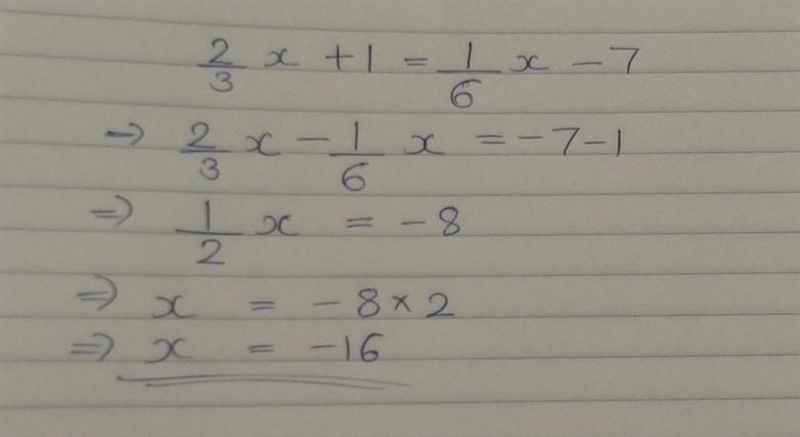 2/3 x + 1 = 1/6 x - 7
→ 2/3 x - 1/6 x = -7-1
⇒ 1/2 x = -8
⇒ x = -8 × 2
⇒ x = -16